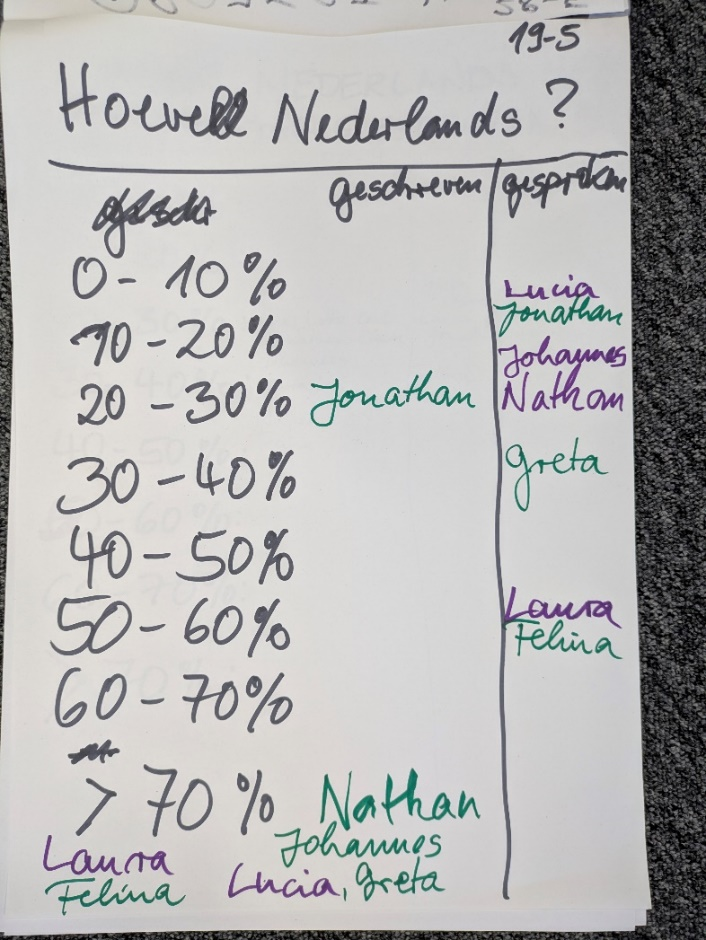 19-5
Hoeveel Nederlands ?
geschreven gesproken
0 - 10 %
Lucia
Jonathan
10 - 20 %
Johannes
20 - 30 % Jonathan Nathan
30 - 40 % Greta
40 - 50 %
50 - 60 % Laura
Felina
60 - 70 %
> 70 % Nathan
Johannes
Laura
Felina Lucia, Greta